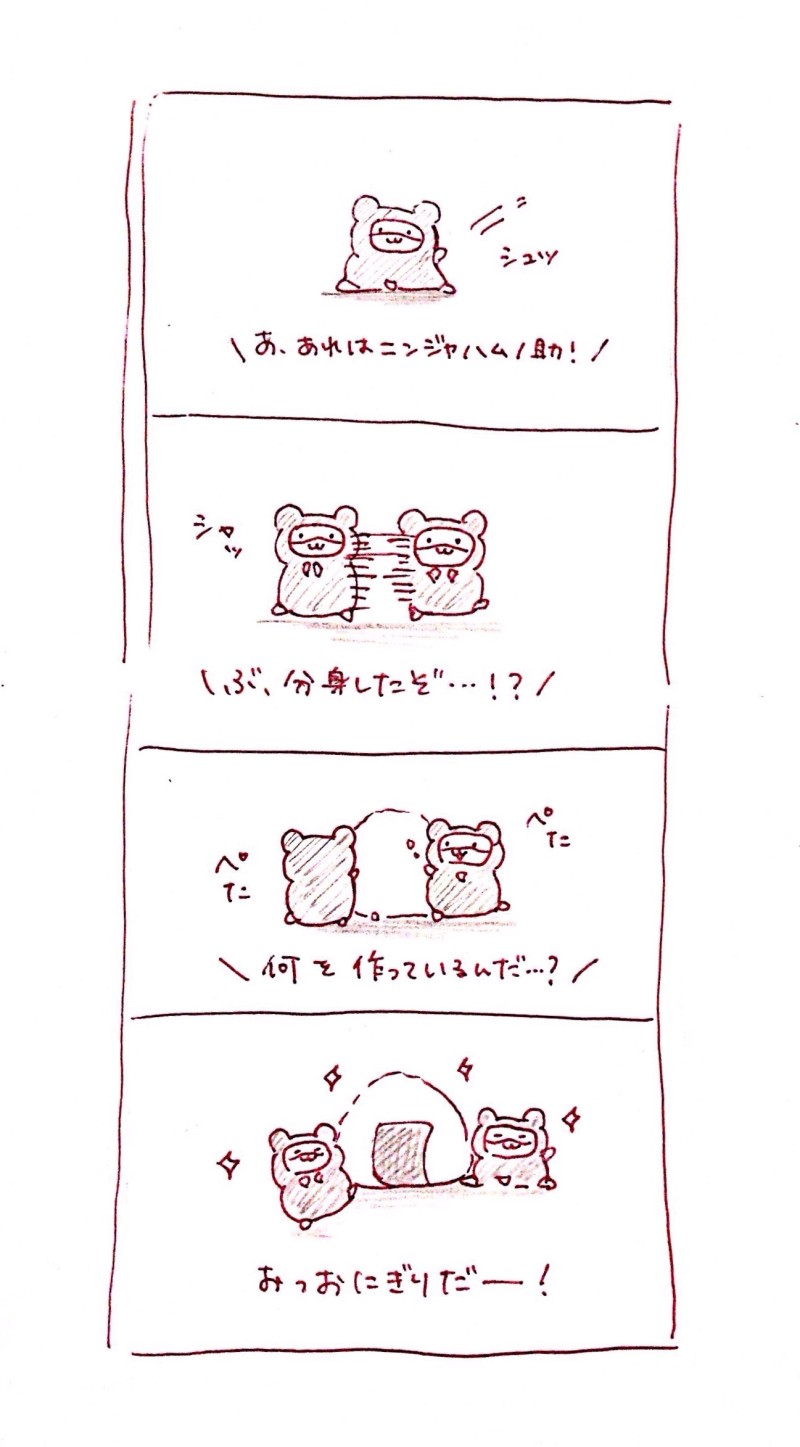 シュッ
\ あ、あれはニンジャハムノ助! /
シャッ
\ ぶ、分身したぞ…!? /
ペた
ペた
\ 何を作っているんだ…? /
おっおにぎりだー!